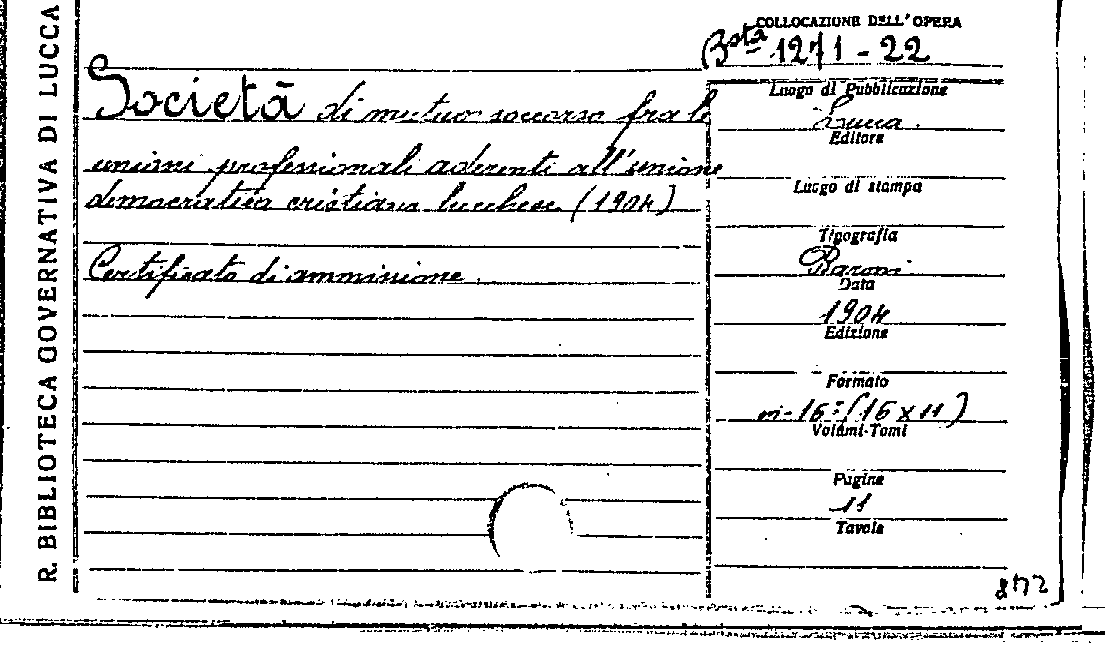 R. BIBLIOTECA GOVERNATIVA DI LUCCA
COLLOCAZIONE DELL'OPERA
Bsta 1271 - 22
Società di mutuo soccorso fra le
unioni professionali aderenti all'unione
democratica cristiana lucchese (1904)
Certificato di ammissione.
Luogo di Pubblicazione
Lucca.
Editore
Luogo di stampa
Tipografia
Baroni
Data
1904
Edizione
Formato
in-16º (16 x 11)
Volumi-Tomi
Pagine
11
Tavole